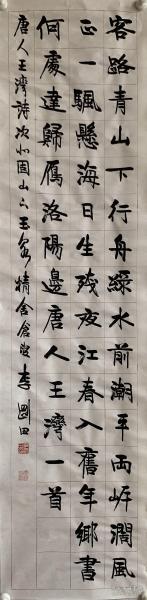 客路青山下行舟綠水前潮平兩岸闊風
正一颿懸海日生殘夜江春入舊年鄉書
何處達歸鴈洛陽邊唐人王灣一首
唐人王灣詩次北固山下精舍李剛田